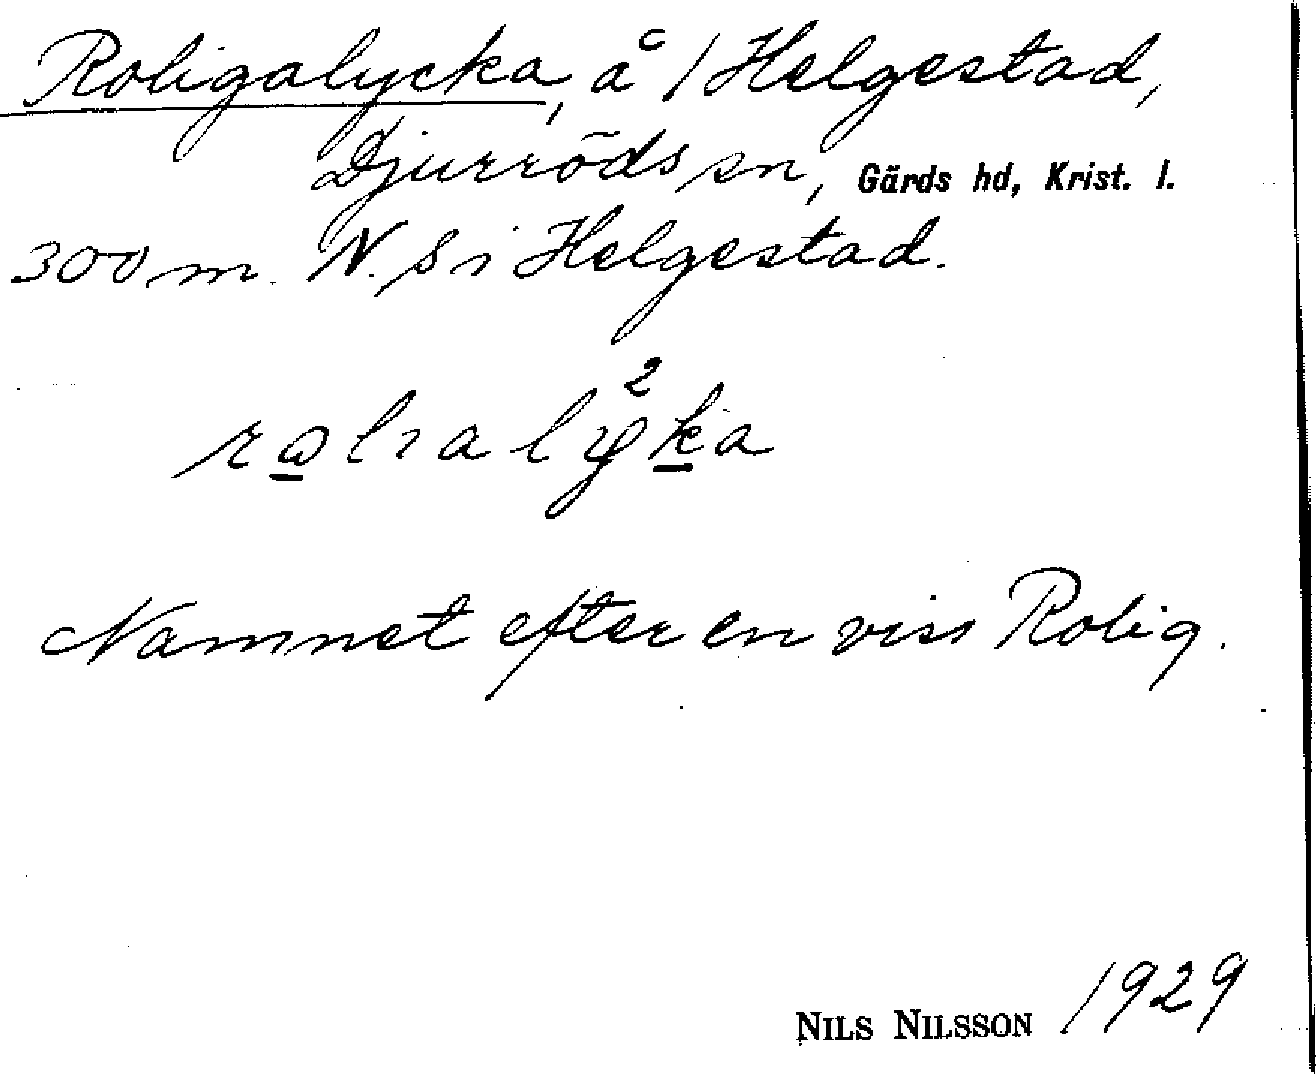 Roligalycka, å / Helgestad,
Djurröds sn, Gärds hd, Krist. l.
300 m. N. S i Helgestad.
Namnet efter en viss Rolig.
NILS NILSSON 1929